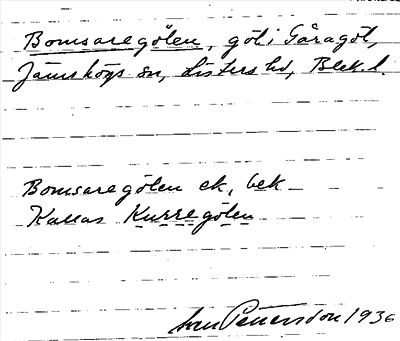 Bomsaregölen, göl i Gåragöl,
Jämshögs sn, Listers hd, Blek. l.
Bomsaregölen ek, bek
Kallas Kurregölen
Pettersson 1936